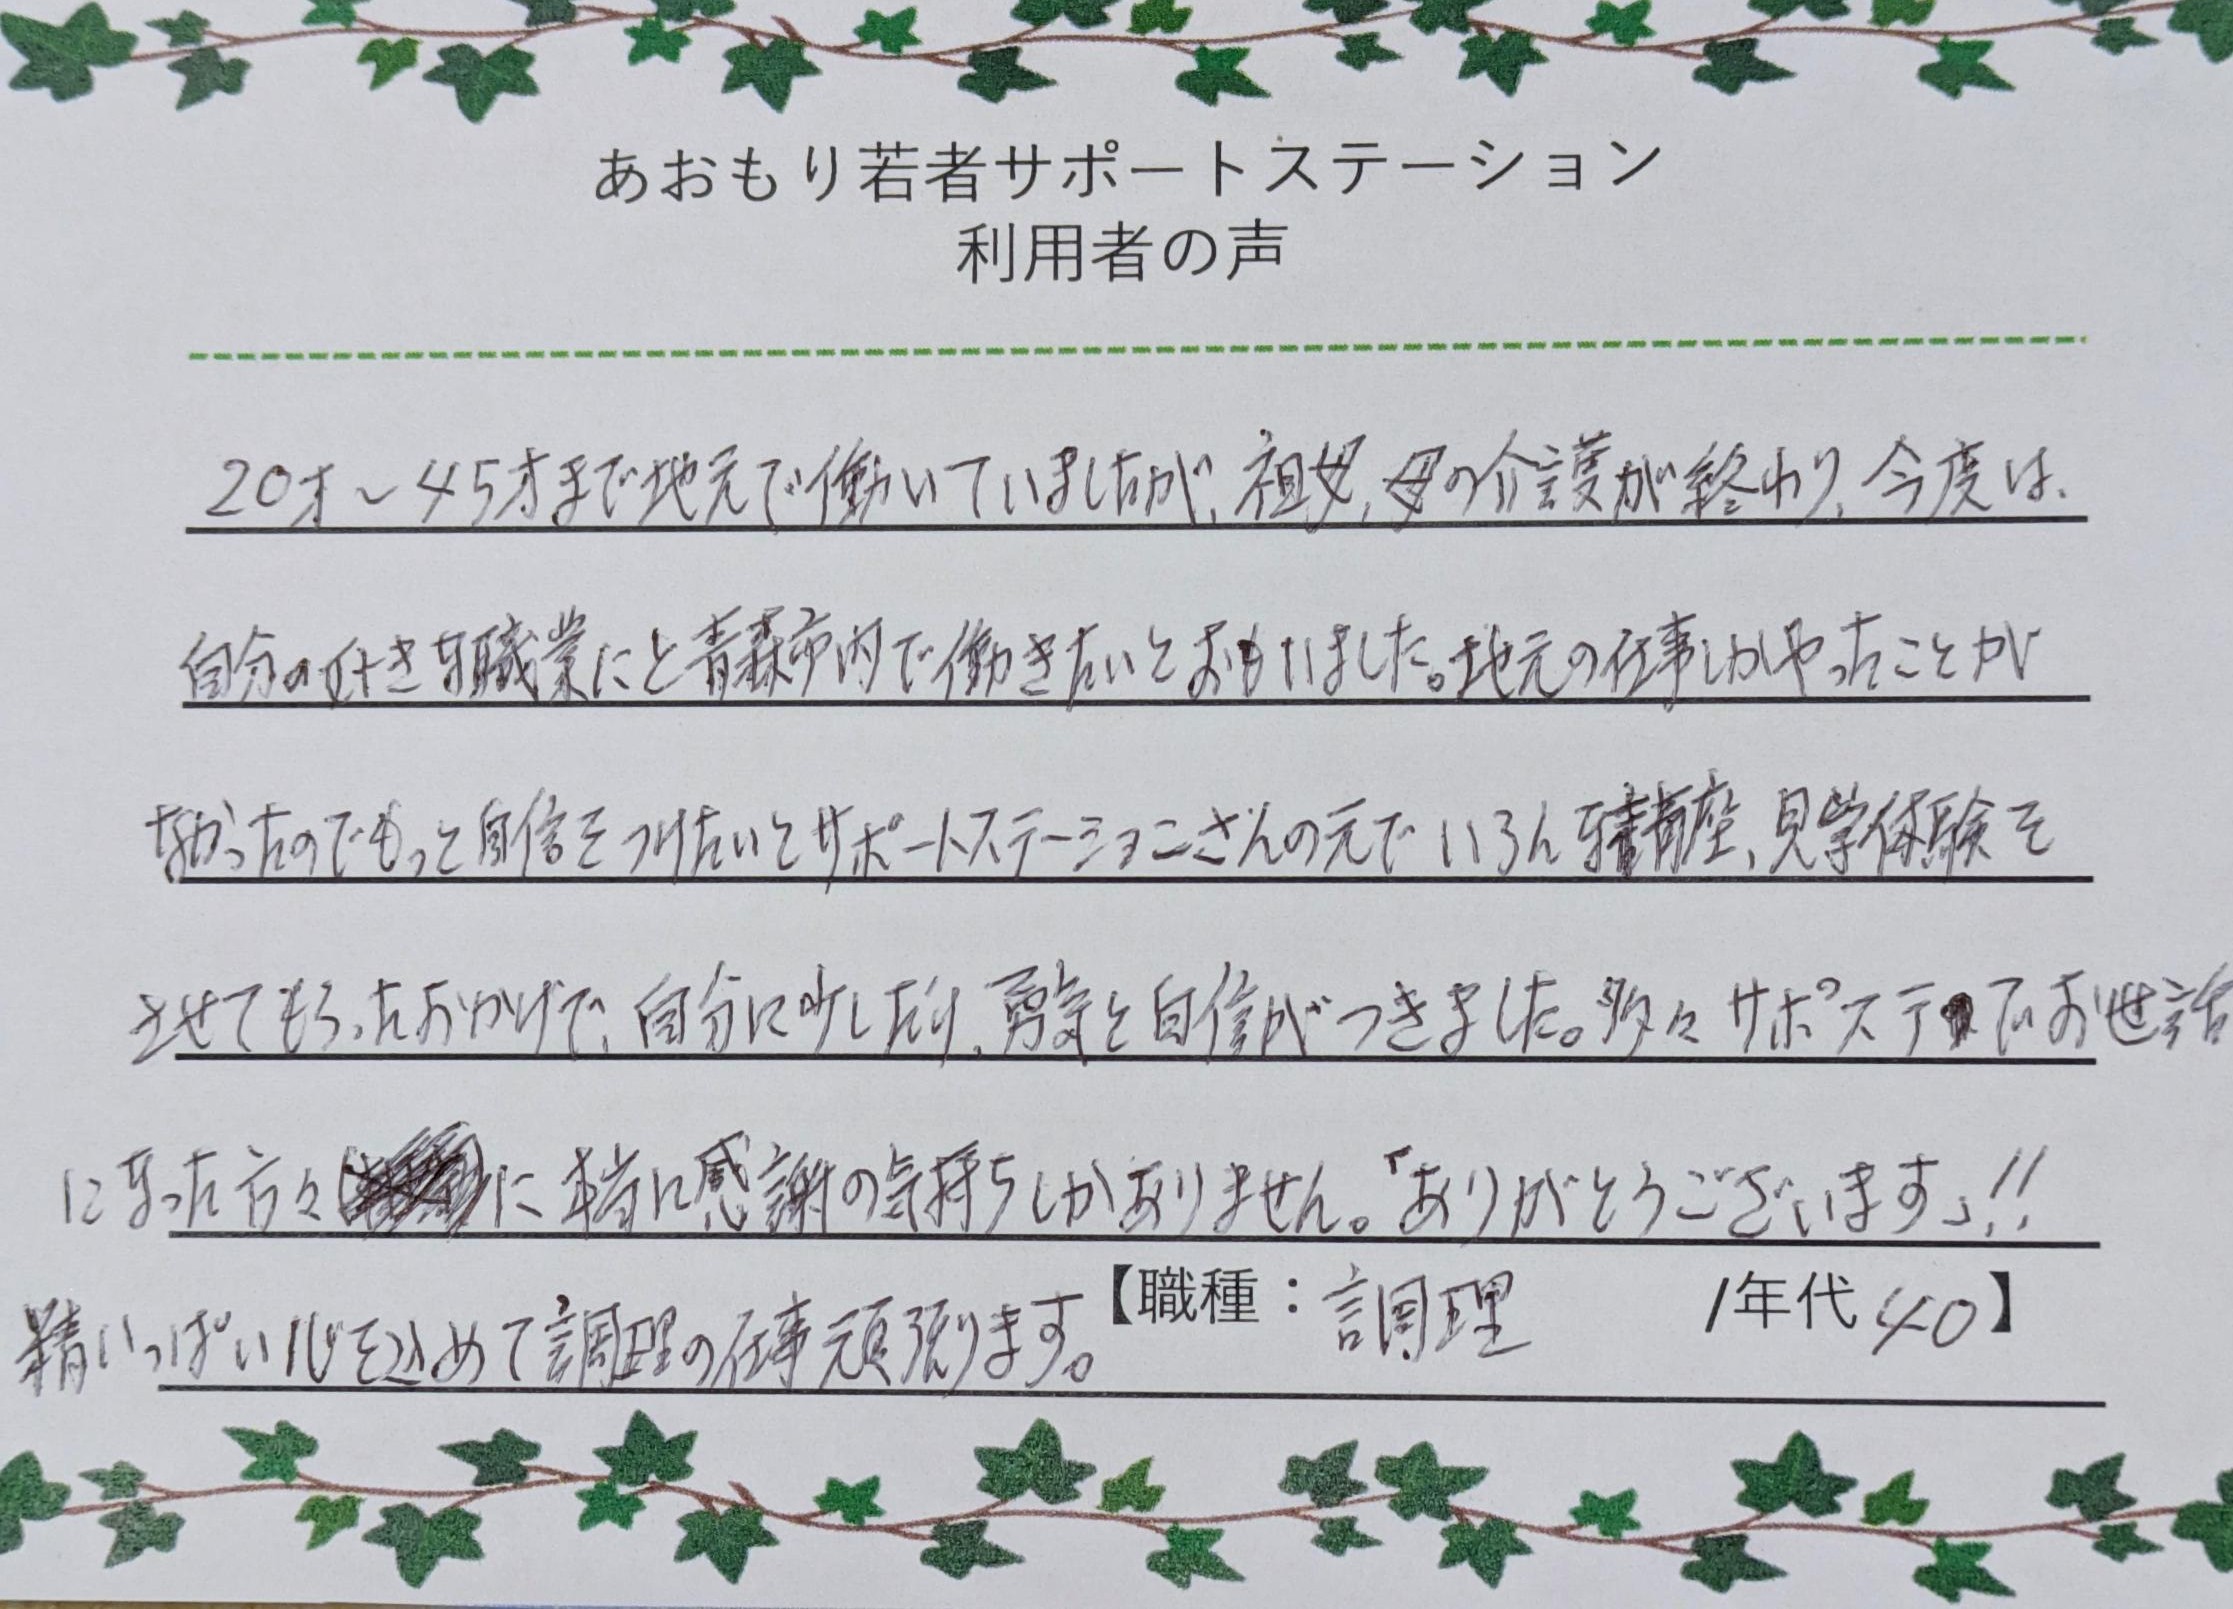 あおもり若者サポートステーション
利用者の声
20才～45才まで地元で働いていましたが、祖母、母の介護が終わり、今度は、
自分の好きな職業にと青森市内で働きたいとおもいました。地元の仕事しかやったことが
なかったのでもっと自信をつけたいとサポートステーションさんの元でいろんな講座、見学体験を
させてもらったおかげで、自分に少しだけ、勇気と自信がつきました。多々サポステでお世話
になった方々に本当に感謝の気持ちしかありません。「ありがとうございます」!!
【職種：調理 /年代 40】
精いっぱい心を込めて調理の仕事頑張ります。